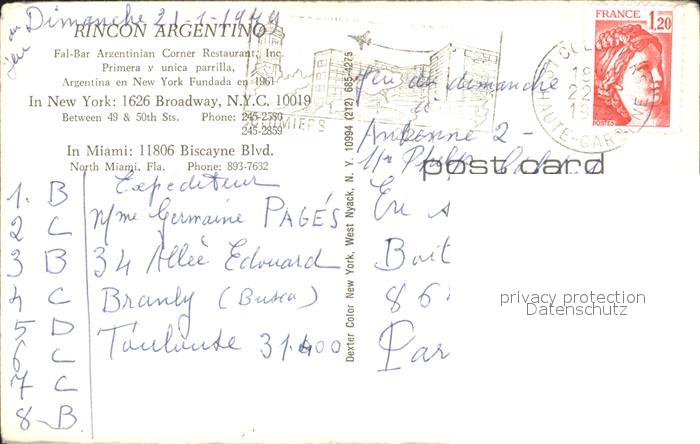 Dimanche 21-1-1979
jeu
RINCON ARGENTINO
Fal-Bar Argentinian Corner Restaurant, Inc.
Primera y unica parrilla,
Argentina en New York Fundada en 1961
In New York: 1626 Broadway, N.Y.C. 10019
Between 49 & 50th Sts. Phone: 245-2580
245-2859
In Miami: 11806 Biscayne Blvd.
North Miami, Fla. Phone: 893-7632
1. B
2 C
3 B
4 C
5 D
6 C
7 C
8 - B
Expéditeur
Mme Germaine PAGÉS
34 Allée Edouard
Branly (Busca)
Toulouse 31.400
Dexter Color New York, West Nyack, N. Y. 10994 (212) 685-4275
FRANCE
1,20
POSTES
HAUTE-GARONNE
22
Jeu du dimanche
à
Antenne 2 -
post card
Boit
Par
privacy protection
Datenschutz